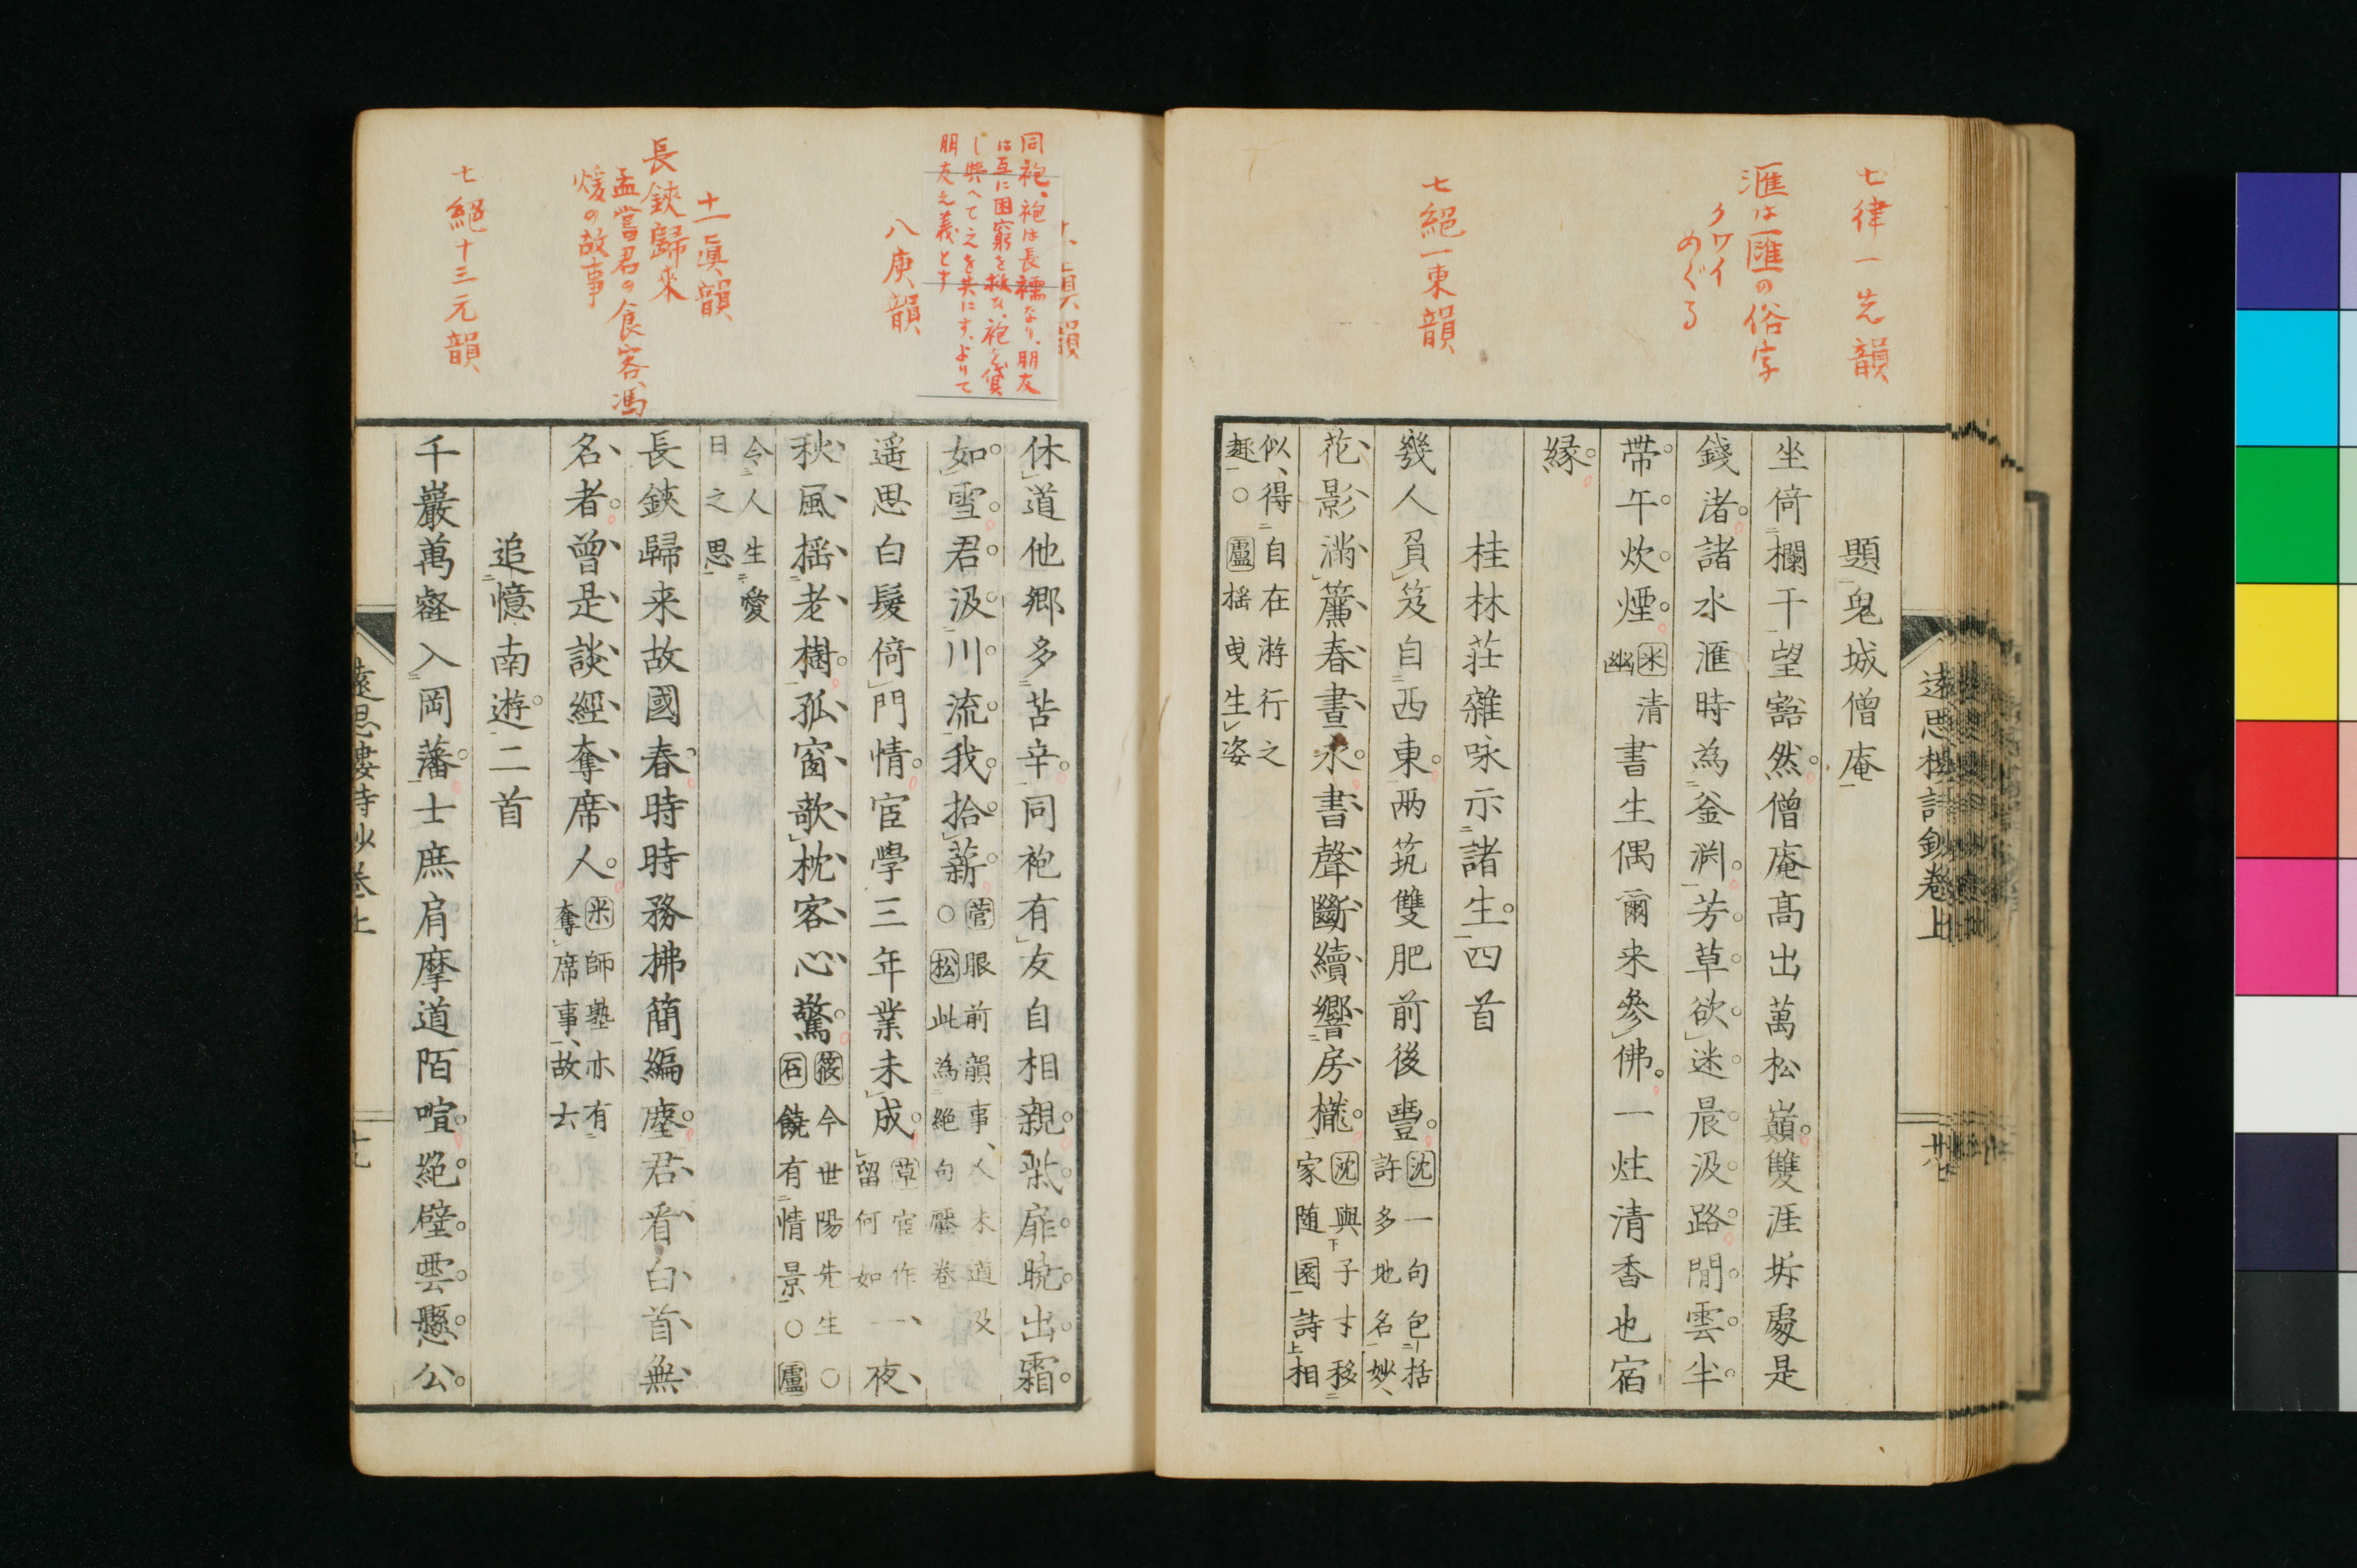 七律一先韻
滙は匯の俗字
クワイ
めぐる
七絕一東韻
題鬼城僧庵
坐倚欄干望豁然僧庵高出萬松巓雙涯坼處是
錢渚諸水滙時為釜渕芳草欲迷晨汲路閒雲半
帶午炊煙米清書生偶爾来參佛一炷清香也宿
幽
縁
桂林莊雜咏示諸生四首
幾人負笈自西東兩筑雙肥前後豐沈一句包括
許多地名妙
花影滿簾春晝永書聲斷續響房櫳沈興子寸移
家随園詩相
似得自在游行之
趣○盧搖曳生姿
遠思樓詩鈔卷上
同袍。袍は長襦なり、朋友
は互に困窮を救ひ、袍を貸
し與へて之を共にす、よりて
朋友之義とす
八庚韻
十一眞韻
長鋏歸來
孟嘗君の食客、馮
煖の故事
七絕十三元韻
休道他鄉多苦辛同袍有友自相親柴扉曉出霜
如雪君汲川流我拾薪菅眼前韻事人未道及
○松此為絕句壓卷
遥思白髮倚門情宦學三年業未成草宦作一夜
留何如
秋風搖老樹孤窗欹枕客心驚筱今世陽先生○
石饒有情景○盧
今人生愛
日之思
長鋏歸来故國春時時務拂簡編塵君看白首無
名者曾是談經奪席人米師塾亦有
奪席事故云
追憶南遊二首
千巖萬壑入岡藩士庶肩摩道陌喧絕壁雲懸公
遠思樓詩鈔卷上